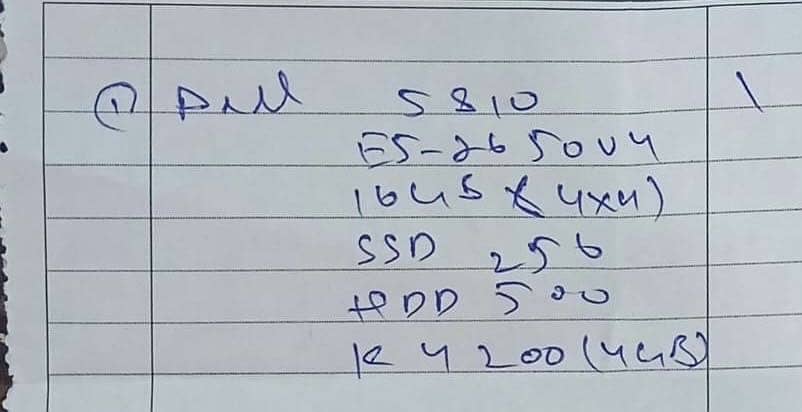 ① Dell 5810 1
E5-2650V4
16GB (4x4)
SSD 256
HDD 500
K4200 (4GB)